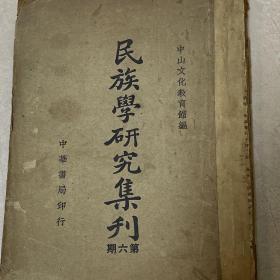 中山文化教育館編
民族學研究集刊
第六期
中華書局印行